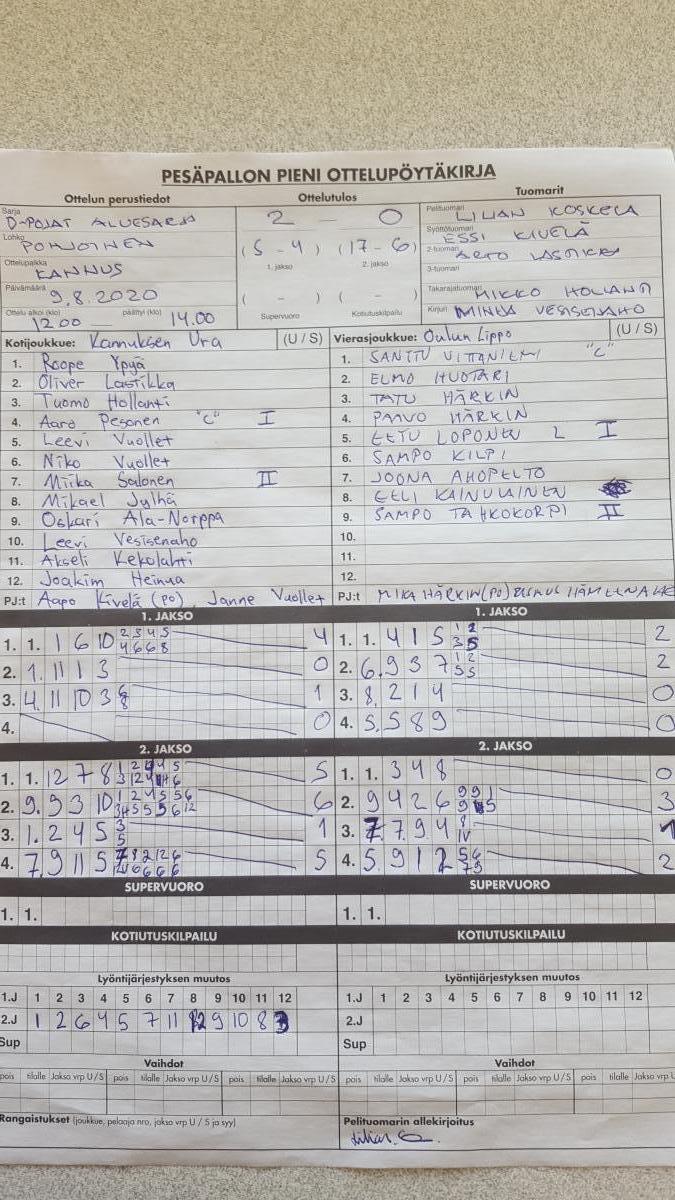 PESÄPALLON PIENI OTTELUPÖYTÄKIRJA
Ottelun perustiedot
Sarja
D-POJAT ALUESARJA
Lohko
POHJOINEN
Ottelupaikka
KANNUS
Päivämäärä
9.8.2020
Ottelu alkoi (klo) päättyi (klo)
12.00 14.00
Ottelutulos
2 – 0
(5 - 4) (17 - 6)
1. jakso 2. jakso
( - ) ( - )
Supervuoro Kotiutuskilpailu
Tuomarit
Pelituomari
LILIAN KOSKELA
Syöttötuomari
ESSI KIVELÄ
2-tuomari
3-tuomari
Takarajatuomari
MIKKO HOLLANTI
Kirjuri MINEA VESISENAHO
Kotijoukkue: Kannuksen Ura (U / S)
1. Roope Ypyä
2. Oliver Lastikka
3. Tuomo Hollanti
4. Aaro Pesonen "C" I
5. Leevi Vuollet
6. Niko Vuollet
7. Miika Salonen II
8. Mikael Jylhä
9. Oskari Ala-Norppa
10. Leevi Vesisenaho
11. Akseli Kekolahti
12. Joakim Heinua
PJ:t Aapo Kivelä (PO), Janne Vuollet
Vierasjoukkue: Oulun Lippo (U / S)
1. SANTTU VITTANIEMI "C"
2. ELMO HUOTARI
3. TATU HÄRKIN
4. PAAVO HÄRKIN
5. EETU LOPONEN 2 I
6. SAMPO KILPI
7. JOONA AHOPELTO
8. EELI KAINULAINEN
9. SAMPO TAHKOKORPI II
10.
11.
12.
PJ:t MIKA HÄRKIN (PO)
1. JAKSO
1. 1. 1 6 10 2 3 4 5 4
4 6 6 8
2. 1. 11 1 3 0
3. 4. 11 10 3 1
4. 0
1. JAKSO
1. 1. 4 1 5 1 2 2
3 5
2. 6. 9 3 7 1 2 2
5 5
3. 8. 2 1 4 0
4. 5. 5 8 9 0
2. JAKSO
1. 1. 12 7 8 5
2. 9. 9 3 10 1 2 4 5 5 6 6
3. 1. 2 4 5 3 1
5
4. 7. 9 11 5 5
2. JAKSO
1. 1. 3 4 8 0
2. 9 4 2 6 3
3. 7. 7. 9 4 1
4. 5. 9 1 2 5 6 2
7 5
SUPERVUORO
1. 1.
SUPERVUORO
1. 1.
KOTIUTUSKILPAILU
KOTIUTUSKILPAILU
Lyöntijärjestyksen muutos
1.J 1 2 3 4 5 6 7 8 9 10 11 12
2.J 1 2 6 4 5 7 11 12 9 10 8 3
Sup
Lyöntijärjestyksen muutos
1.J 1 2 3 4 5 6 7 8 9 10 11 12
2.J
Sup
Vaihdot
pois tilalle Jakso vrp U / S pois tilalle Jakso vrp U / S pois tilalle Jakso vrp U / S
Vaihdot
pois tilalle Jakso vrp U / S pois tilalle Jakso vrp U / S pois tilalle Jakso vrp
Rangaistukset (joukkue, pelaaja nro, jakso vrp U / S ja syy)
Pelituomarin allekirjoitus